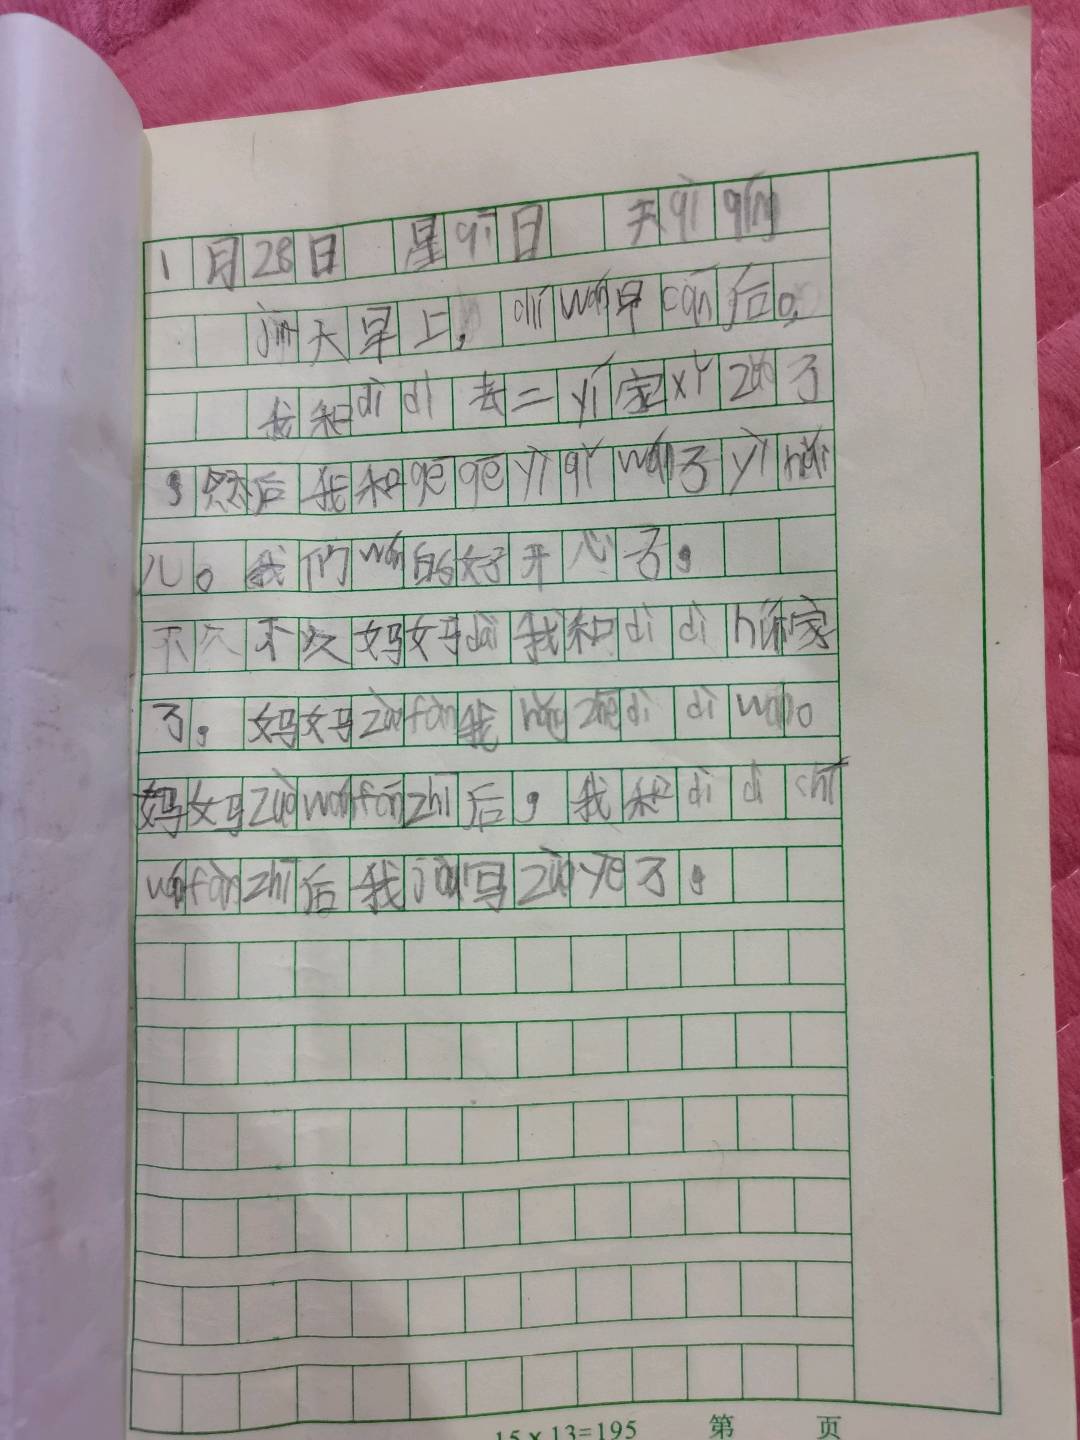 1月28日 星qī日 天qì qíng
jīn天早上，chī wán早cān后。
我和dì dì去二yí家xǐ zǎo了
，然后我和gē gē yì qǐ wán了yì huǐ
儿。我们wán的好开心了。
不久不久妈妈dài我和dì dì huí家
了。妈妈zuò fàn我hǒng zhe dì dì wán。
妈妈zuò wán fàn zhī后，我和dì dì chī
wán fàn zhī后我jiù写zuò yè了。
15×13=195 第 页